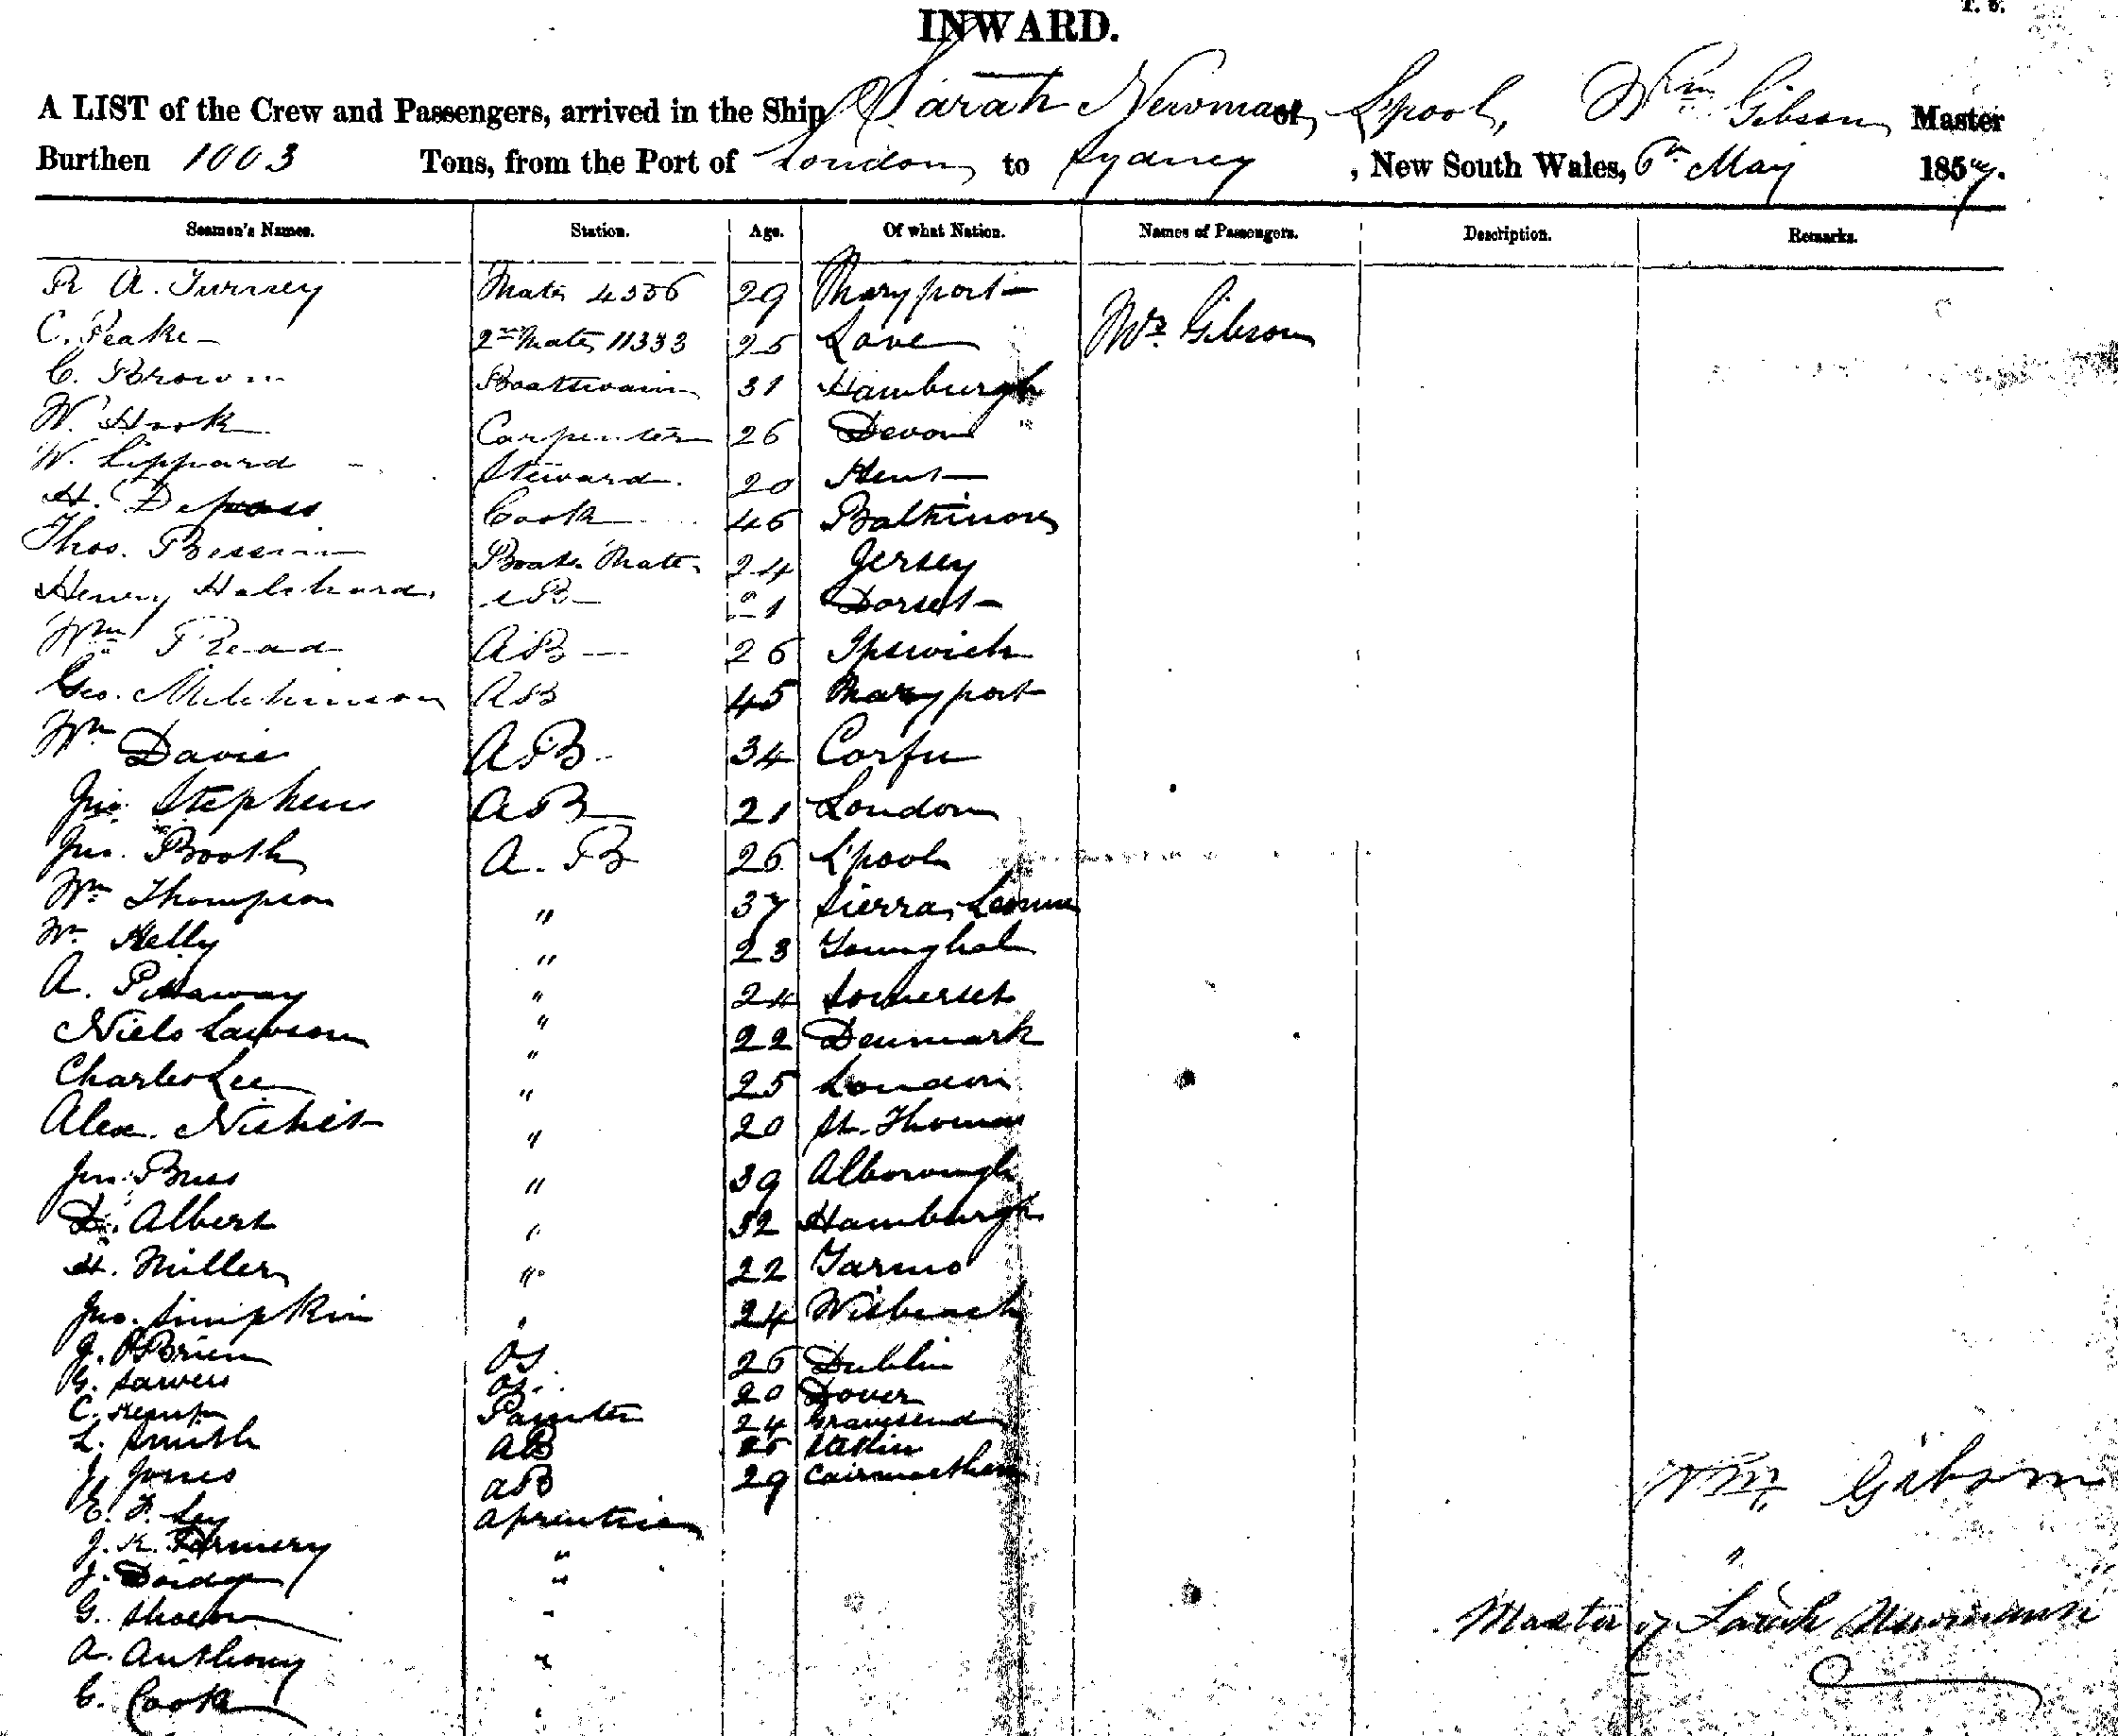 INWARD.
A LIST of the Crew and Passengers, arrived in the Ship Sarah Newman of L'pool, Wm Gibson Master
Burthen 1003 Tons, from the Port of London to Sydney, New South Wales, 6th May 1857.
Seamen's Names. Station. Age. Of what Nation. Names of Passengers. Description. Remarks.
R A. Turney Mate 4556 29 Maryport Mrs Gibson
C. Peake 2nd Mate 11333 25
C. Brown Boatswain 31 Hamburgh
W. Hook Carpenter 26 Devon
W. Lippard Steward 20 Kent
H. Depass Cook 46 Baltimore
Thos. Boats. Mate 24 Jersey
Henry AB 21 Dorset
Wm Read AB 26 Ipswich
Geo. Mitchinson AB 45 Maryport
Wm Davis AB 34 Corfu
Jno. Stephens AB 21 London
Jno. Booth A. B 26 L'pool
Wm Thompson " 37 Sierra Leone
Wm Kelly " 23 Youghal
A. Pittaway " 24 Somerset
Niels Lawson " 22 Denmark
Charles Lee " 25 London
Alex. Nisbet " 20 St. Thomas
Jno. Buss " 39 Alborough
D. Albert " 32 Hamburgh
H. Miller " 22
Jno. Simpkin " 24 Wisbeach
J. O'Brien OS 26 Dublin
G. Sawers OS. 20 Dover
C. Kemp Painter 24 Gravesend
L. Smith AB
J. Jones AB 29 Cairmarthen
E. F. Ley Aprentice
J. R. Formery "
J. Doidge "
G. "
A. Anthony "
C. Cook "
Wm Gibson
Master of Sarah Newmann